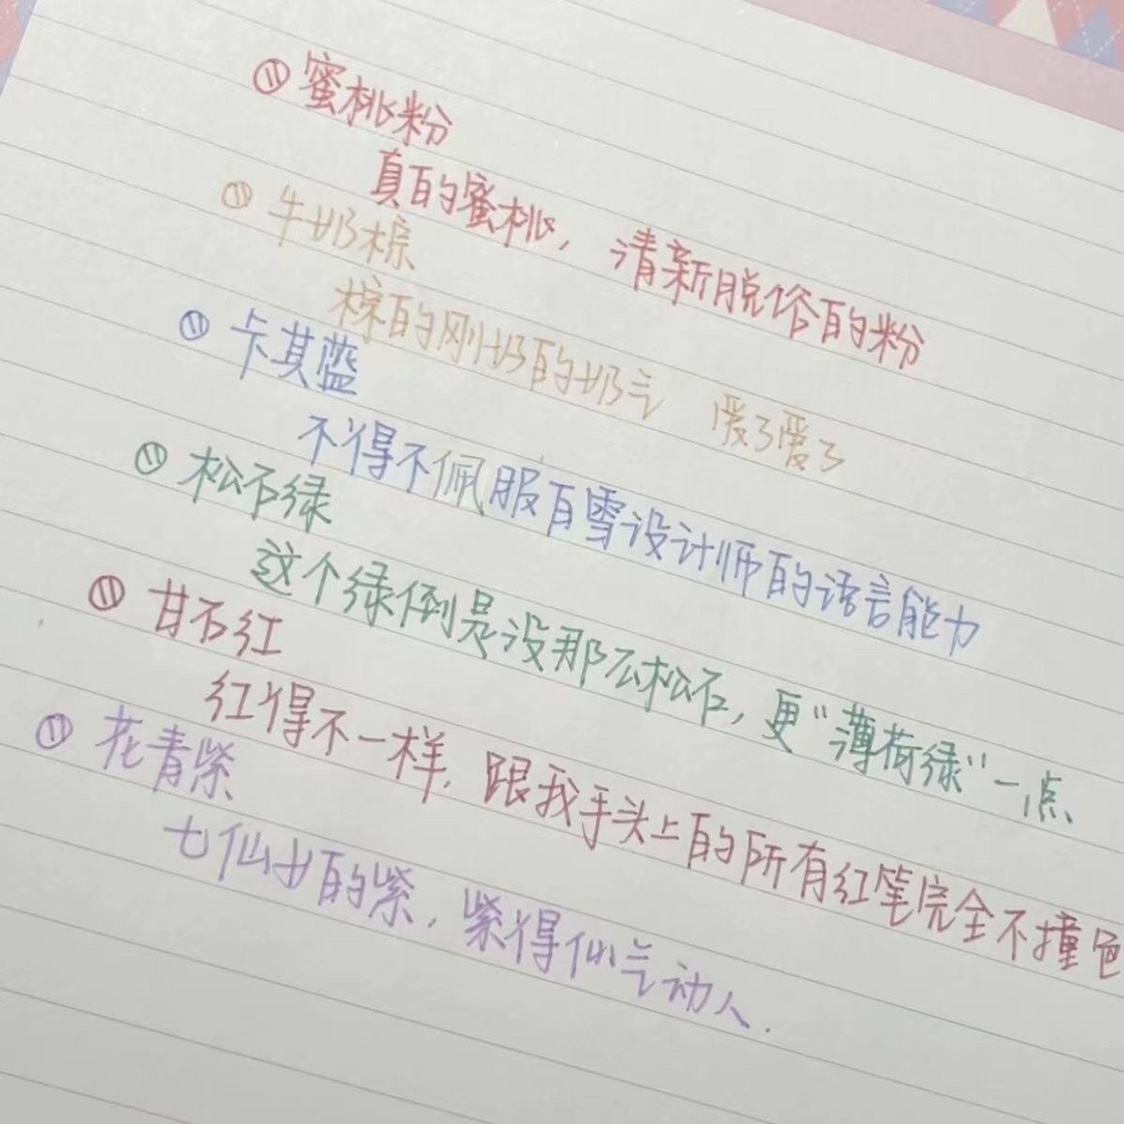 蜜桃粉
真的蜜桃，清新脱俗的粉
牛奶棕
棕的刚好的奶气 爱了爱了
卡其蓝
不得不佩服百雪设计师的语言能力
松石绿
这个绿倒是没那么松石，更“薄荷绿”一点
甘石红
红得不一样，跟我手头上的所有红笔完全不撞色
花青紫
七仙女的紫，紫得仙气动人.